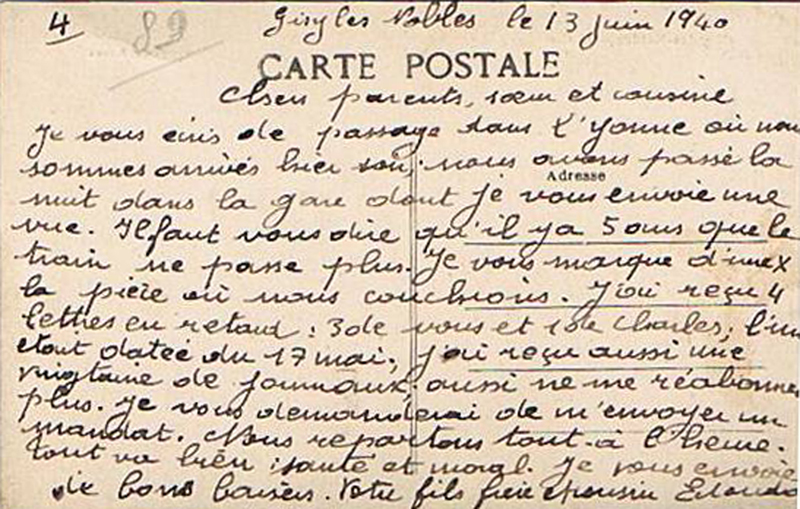 4 89 Gisy les Nobles le 13 juin 1940
CARTE POSTALE
Chers parents, sœur et cousine
Je vous écris de passage dans l'Yonne où nous
sommes arrivés hier soir; nous avons passé la
Adresse
nuit dans la gare dont je vous envoie une
vue. Il faut vous dire qu'il y a 5 ans que le
train ne passe plus. Je vous marque d'une X
la pièce où nous couchions. J'ai reçu 4
lettres en retard : 3 de vous et 1 de Charles, l'une
étant datée du 17 mai; j'ai reçu aussi une
vingtaine de journaux; aussi ne me réabonnez
plus. Je vous demanderai de m'envoyer un
mandat. Nous repartons tout à l'heure.
tout va bien : santé et moral. Je vous envoie
de bons baisers. Votre fils frère cousin Edouard